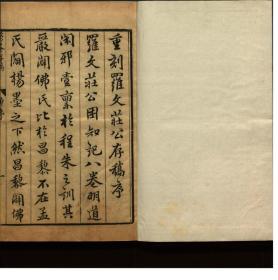 重刻羅文莊公存稿序
羅文莊公困知記八卷明道
闢邪壹稟於程朱之訓其
嚴闢佛氏比於昌黎不在孟
氏闢揚墨之下然昌黎闢佛